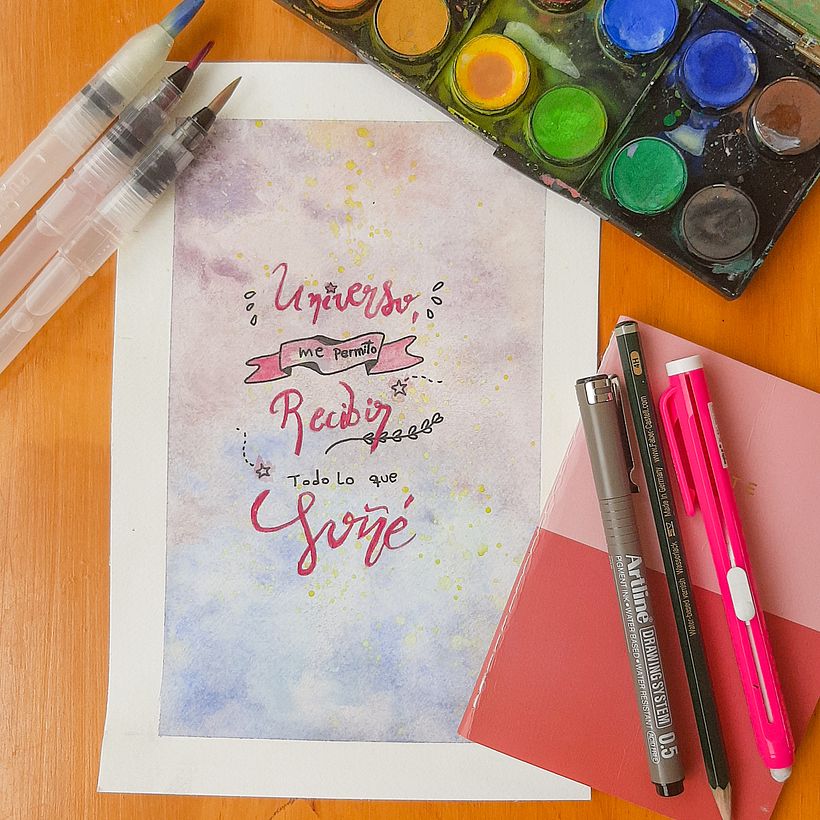 Universo,
me permito
Recibir
Todo lo que
Soñé
Artline DRAWING SYSTEM 0.5
PIGMENT INK • WATER BASED • WATER RESISTANT
4H
Made in Germany www.Faber-Castell.com
TE